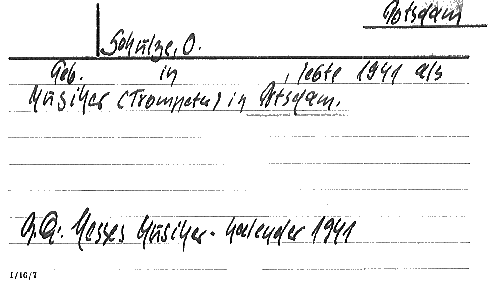 Potsdam
Schulze, O.
Geb. in , lebte 1941 als
Musiker (Trompeter) in Potsdam.
Hesses Musiker-Kalender 1941
1/16/7